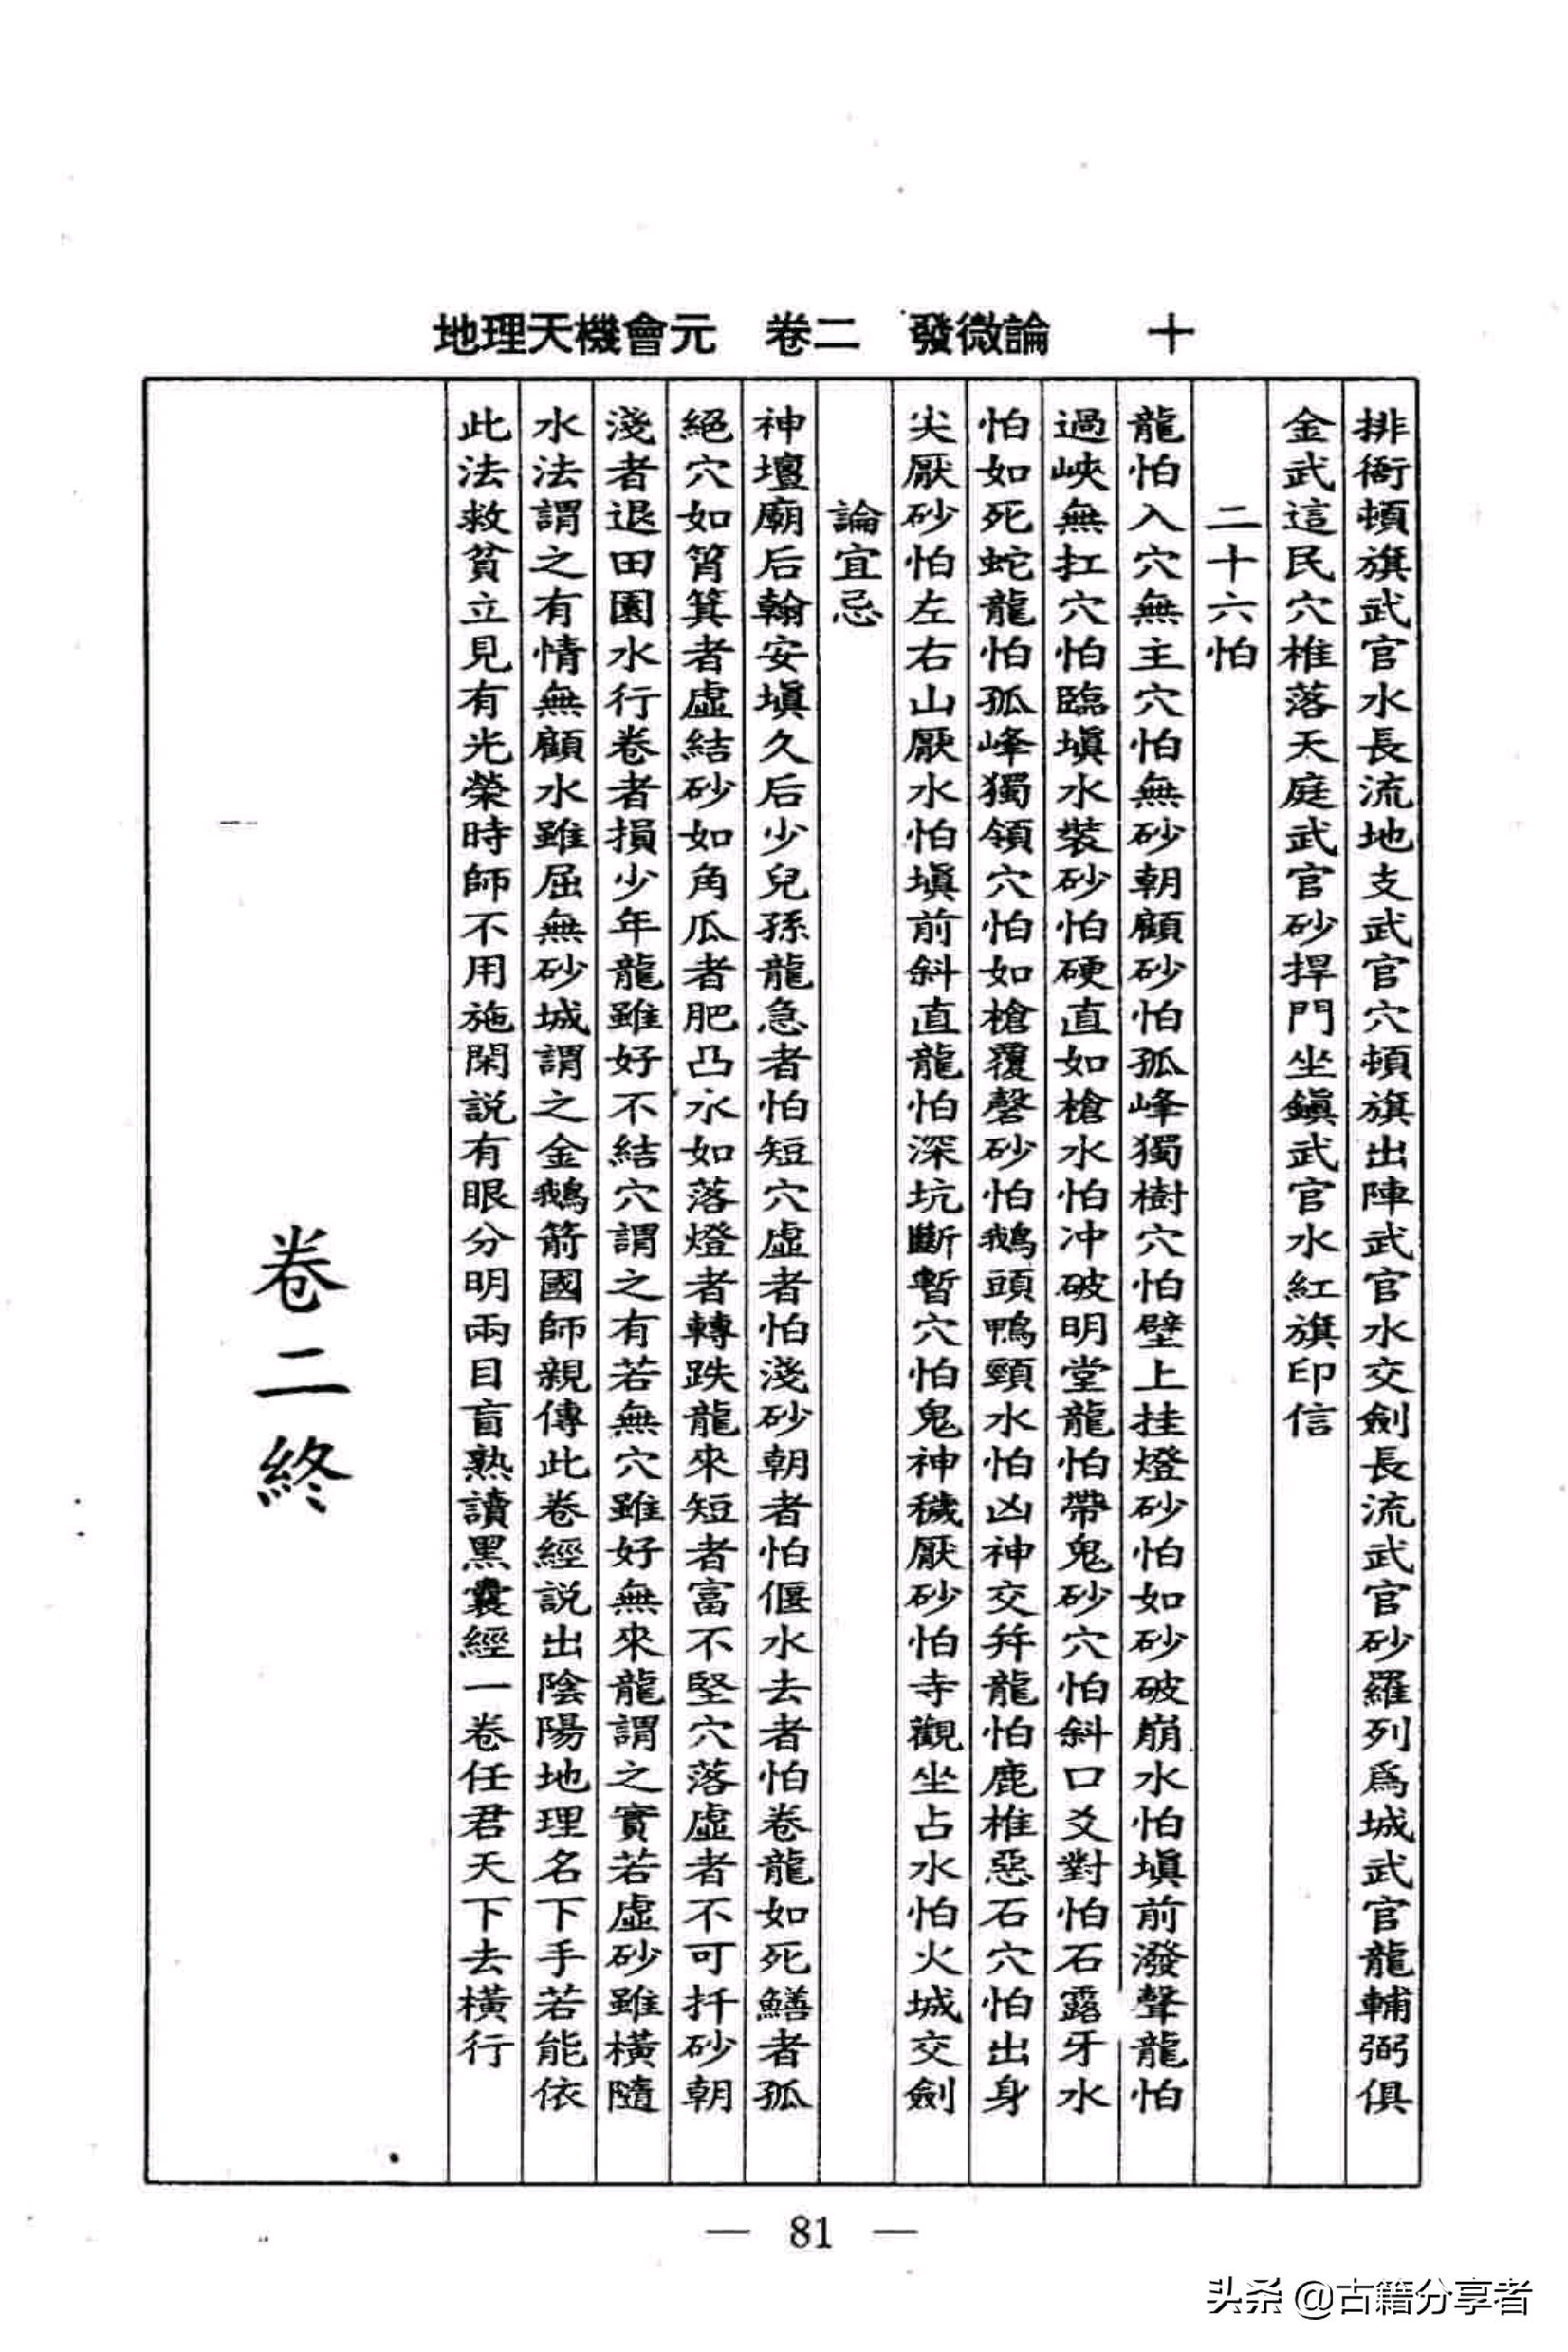 地理天機會元　卷二　發微論　　十
排衙頓旗武官水長流地支武官穴頓旗出陣武官水交劍長流武官砂羅列爲城武官龍輔弼俱
金武這民穴椎落天庭武官砂捍門坐鎭武官水紅旗印信
二十六怕
龍怕入穴無主穴怕無砂朝顧砂怕孤峰獨樹穴怕壁上挂燈砂怕如砂破崩水怕塡前潑聲龍怕
過峽無扛穴怕臨塡水裝砂怕硬直如槍水怕冲破明堂龍怕帶鬼砂穴怕斜口爻對怕石露牙水
怕如死蛇龍怕孤峰獨領穴怕如槍覆磬砂怕鵝頭鴨頸水怕凶神交幷龍怕鹿椎惡石穴怕出身
尖厭砂怕左右山厭水怕塡前斜直龍怕深坑斷暫穴怕鬼神穢厭砂怕寺觀坐占水怕火城交劍
論宜忌
神壇廟后翰安塡久后少兒孫龍急者怕短穴虛者怕淺砂朝者怕偃水去者怕卷龍如死鱔者孤
絕穴如筲箕者虛結砂如角瓜者肥凸水如落燈者轉跌龍來短者富不堅穴落虛者不可扦砂朝
淺者退田園水行卷者損少年龍雖好不結穴謂之有若無穴雖好無來龍謂之實若虛砂雖橫隨
水法謂之有情無顧水雖屈無砂城謂之金鵝箭國師親傳此卷經説出陰陽地理名下手若能依
此法救貧立見有光榮時師不用施閑説有眼分明兩目盲熟讀黑囊經一卷任君天下去橫行
卷二終
— 81 —
头条 @古籍分享者